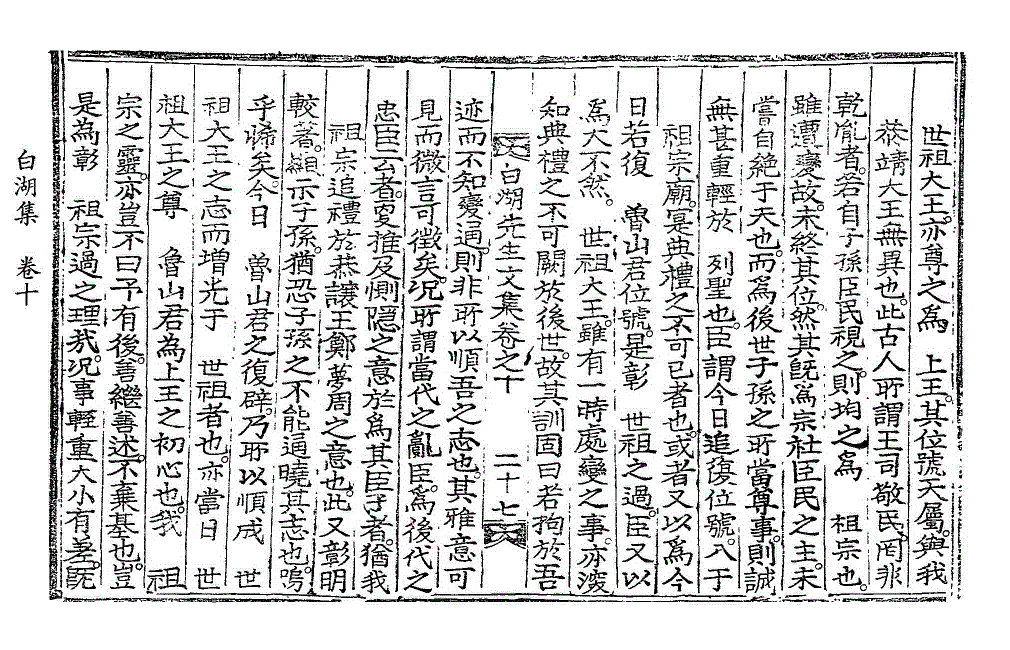 世祖大王。亦尊之為　上王。其位號天屬。與我
恭靖大王無異也。此古人所謂王司敬民。罔非
乾胤者。若自子孫臣民視之。則均之為　祖宗也。
雖遭變故。未終其位。然其既為宗社臣民之主。未
嘗自絕于天也。而為後世子孫之所當尊事。則誠
無甚重輕於　列聖也。臣謂今日追復位號。入于
祖宗廟。寔典禮之不可已者也。或者又以為今
日若復　魯山君位號。是彰　世祖之過。臣又以
為大不然。　世祖大王。雖有一時處變之事。亦深
知典禮之不可闕於後世。故其訓固曰若拘於吾
白湖先生文集卷之十　二十七
迹而不知變通。則非所以順吾之志也。其雅意可
見而微言可徵矣。況所謂當代之亂臣。為後代之
忠臣云者。寔推及惻隱之意於為其臣子者。猶我
祖宗追禮於恭讓王鄭夢周之意也。此又彰明
較著。顯示子孫。猶恐子孫之不能通曉其志也。嗚
乎悕矣。今日　魯山君之復辟。乃所以順成　世
祖大王之志而增光于　世祖者也。亦當日　世
祖大王之尊　魯山君為上王之初心也。我　祖
宗之靈。亦豈不曰予有後。善繼善述。不棄基也。豈
是為彰　祖宗過之理哉。況事輕重大小有差。既
白湖集　卷十